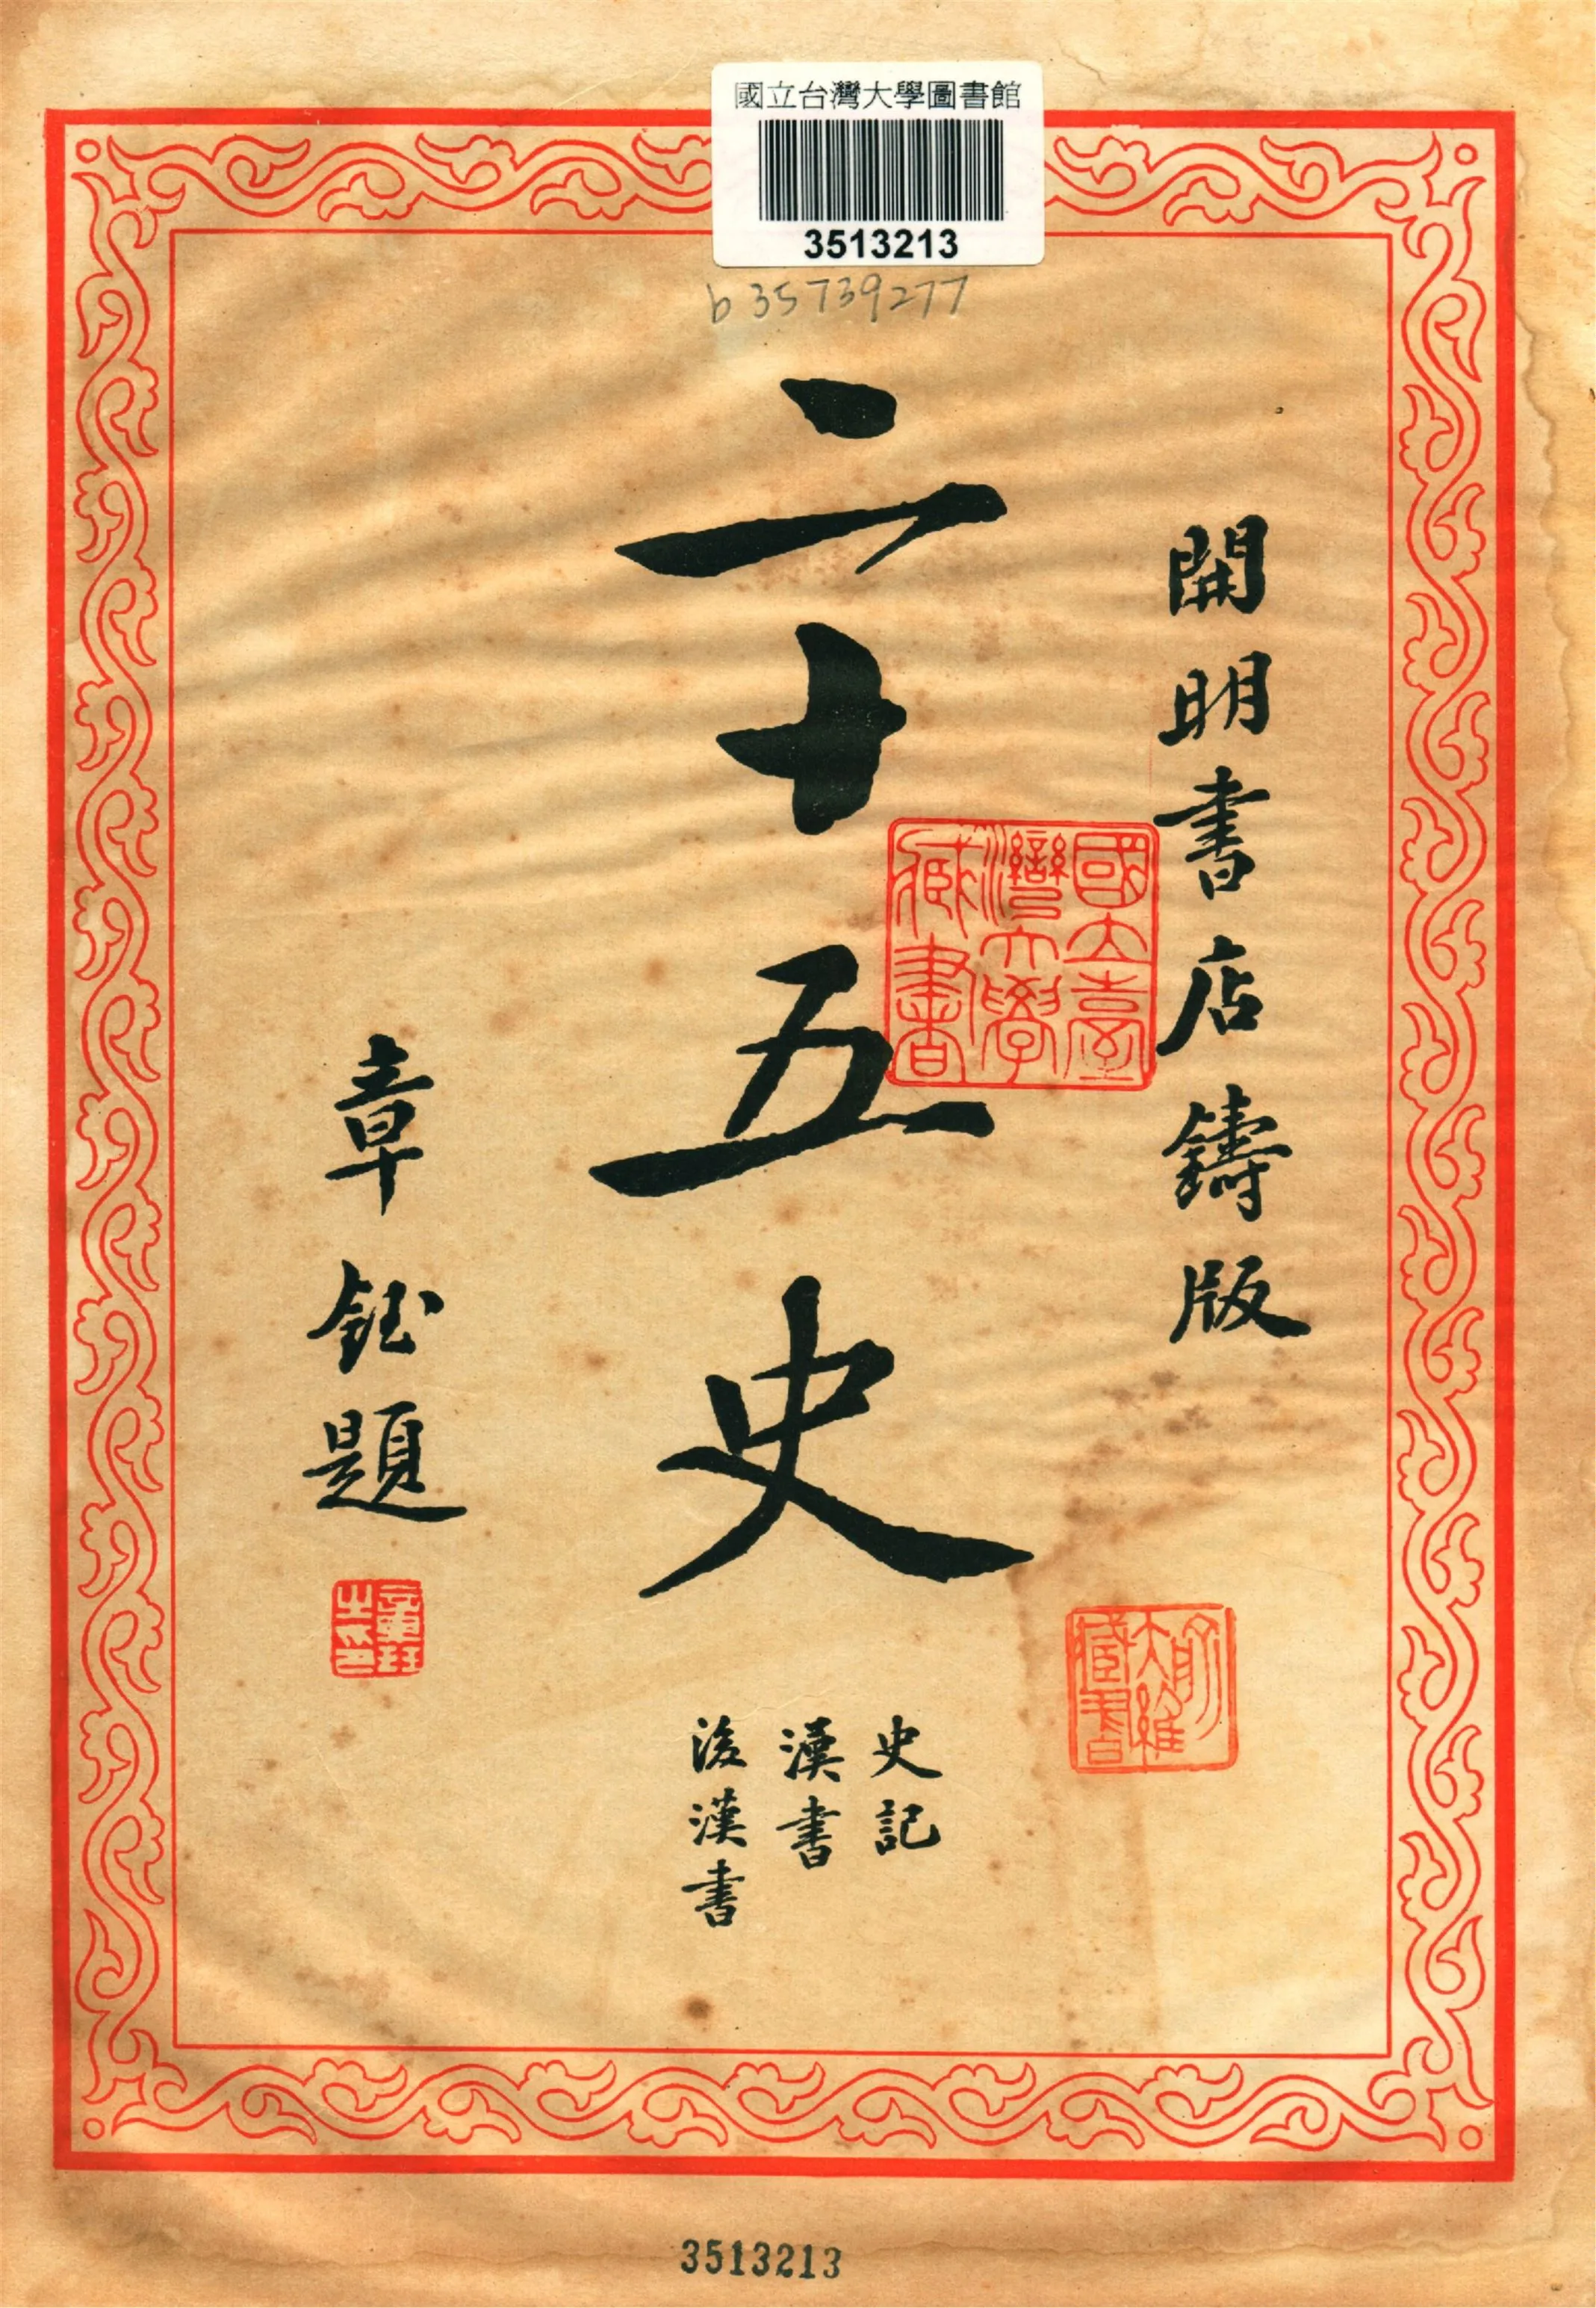 國立台灣大學圖書館
3513213
b35739277
開明書店鑄版
國立臺灣大學藏書
俞大維藏書
二十五史
史記
漢書
後漢書
章鈺題
章鈺之印
3513213